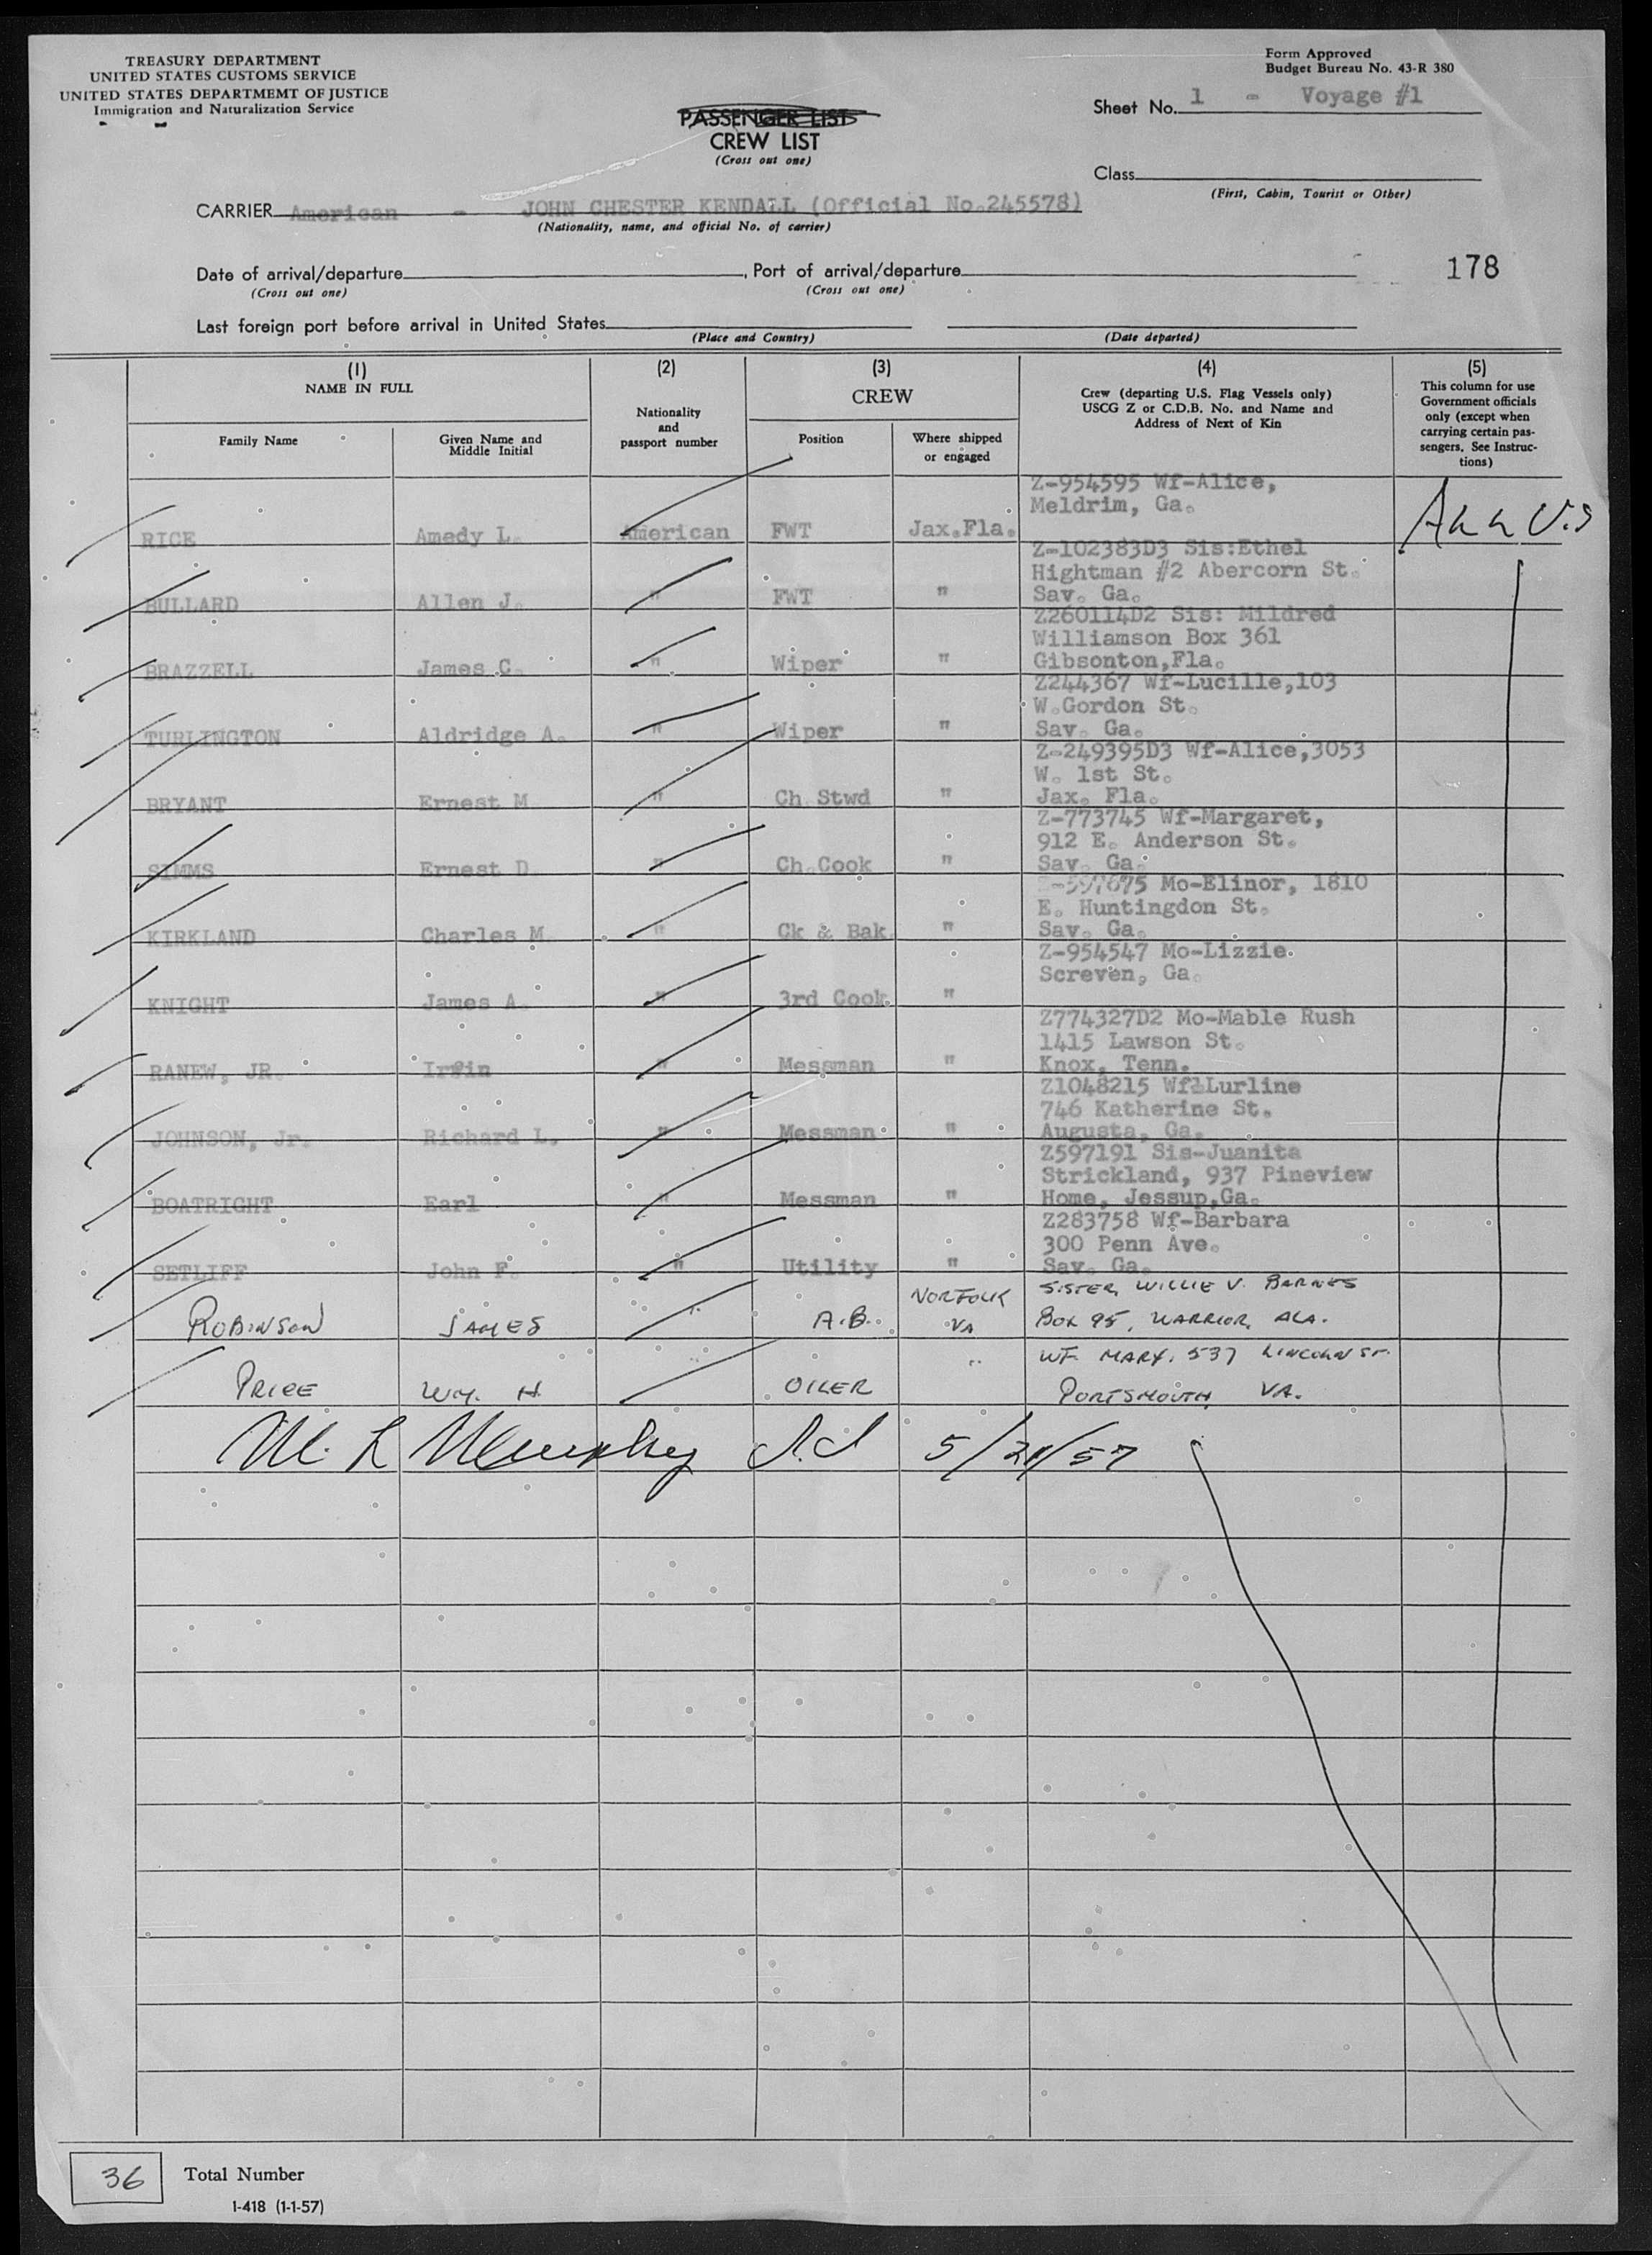 TREASURY DEPARTMENT
UNITED STATES CUSTOMS SERVICE
UNITED STATES DEPARTMEMT OF JUSTICE
Immigration and Naturalization Service
Form Approved
Budget Bureau No. 43-R 380
Sheet No. 1 - Voyage #1
PASSENGER LIST
CREW LIST
(Cross out one)
Class
(First, Cabin, Tourist or Other)
CARRIER American - JOHN CHESTER KENDALL (Official No.245578)
(Nationality, name, and official No. of carrier)
Date of arrival/departure , Port of arrival/departure
(Cross out one) (Cross out one)
178
Last foreign port before arrival in United States
(Place and Country) (Date departed)
(1) (2) (3) (4) (5)
NAME IN FULL
Family Name
Given Name and
Middle Initial
Nationality
and
passport number
CREW
Position
Where shipped
or engaged
Crew (departing U.S. Flag Vessels only)
USCG Z or C.D.B. No. and Name and
Address of Next of Kin
This column for use
Government officials
only (except when
carrying certain pas-
sengers. See Instruc-
tions)
Z-954595 Wf-Alice,
Meldrim, Ga.
RICE Amedy L. American FWT Jax.Fla.
Z-102383D3 Sis:Ethel
Hightman #2 Abercorn St.
BULLARD Allen J. " FWT " Sav. Ga.
Z260114D2 Sis: Mildred
Williamson Box 361
BRAZZELL James C. " Wiper " Gibsonton,Fla.
Z244367 Wf-Lucille,103
W.Gordon St.
TURLINGTON Aldridge A. " Wiper " Sav. Ga.
Z-249395D3 Wf-Alice,3053
W. 1st St.
BRYANT Ernest M " Ch Stwd " Jax. Fla.
Z-773745 Wf-Margaret,
912 E. Anderson St.
SIMMS Ernest D. " Ch.Cook " Sav. Ga.
Mo-Elinor, 1810
E. Huntingdon St.
KIRKLAND Charles M. " Ck & Bak. " Sav. Ga.
Z-954547 Mo-Lizzie
Screven, Ga.
KNIGHT James A. " 3rd Cook. "
Z774327D2 Mo-Mable Rush
1415 Lawson St.
RANEW, JR. " Messman " Knox, Tenn.
Z1048215 Wf-Lurline
746 Katherine St.
JOHNSON, Jr. Richard L. " Messman " Augusta, Ga.
Z597191 Sis-Juanita
Strickland, 937 Pineview
BOATRIGHT Earl " Messman " Home, Jessup,Ga.
Z283758 Wf-Barbara
300 Penn Ave.
SETLIFF John F. " Utility " Sav. Ga.
NORFOLK SISTER, WILLIE V. BARNES
ROBINSON JAMES " A.B. VA BOX 95, WARRIOR, ALA.
" WF. MARY. 537 LINCOLN ST.
PRICE WM. H. OILER PORTSMOUTH, VA.
M. L Murphy
36
Total Number
I-418 (1-1-57)